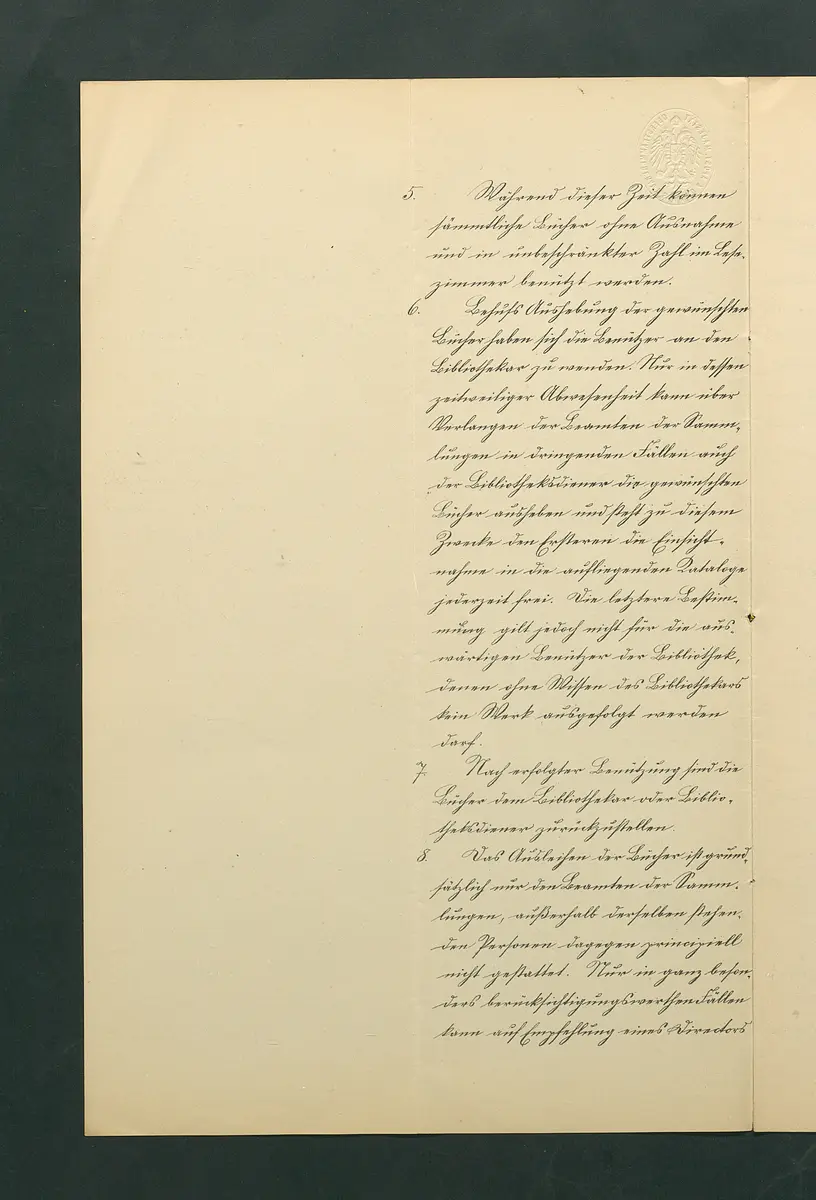 5. Während dieser Zeit können
sämmtliche Bücher ohne Ausnahme
und in unbeschränkter Zahl im Lese-
zimmer benützt werden.
6. Behufs Aushebung der gewünschten
Bücher haben sich die Benützer an den
Bibliothekar zu wenden. Nur in dessen
zeitweiliger Abwesenheit kann über
Verlangen der Beamten der Samm-
lungen in dringenden Fällen auch
der Bibliotheksdiener die gewünschten
Bücher ausheben und steht zu diesem
Zwecke den Ersteren die Einsicht-
nahme in die aufliegenden Kataloge
jederzeit frei. Die letztere Bestim-
mung gilt jedoch nicht für die aus-
wärtigen Benützer der Bibliothek,
denen ohne Wissen des Bibliothekars
kein Werk ausgefolgt werden
darf.
7. Nach erfolgter Benützung sind die
Bücher dem Bibliothekar oder Biblio-
theksdiener zurückzustellen.
8. Das Ausleihen der Bücher ist grund-
sätzlich nur den Beamten der Samm-
lungen, außerhalb derselben stehen-
den Personen dagegen principiell
nicht gestattet. Nur in ganz beson-
ders berücksichtigungswerthen Fällen
kann auf Empfehlung eines Directors